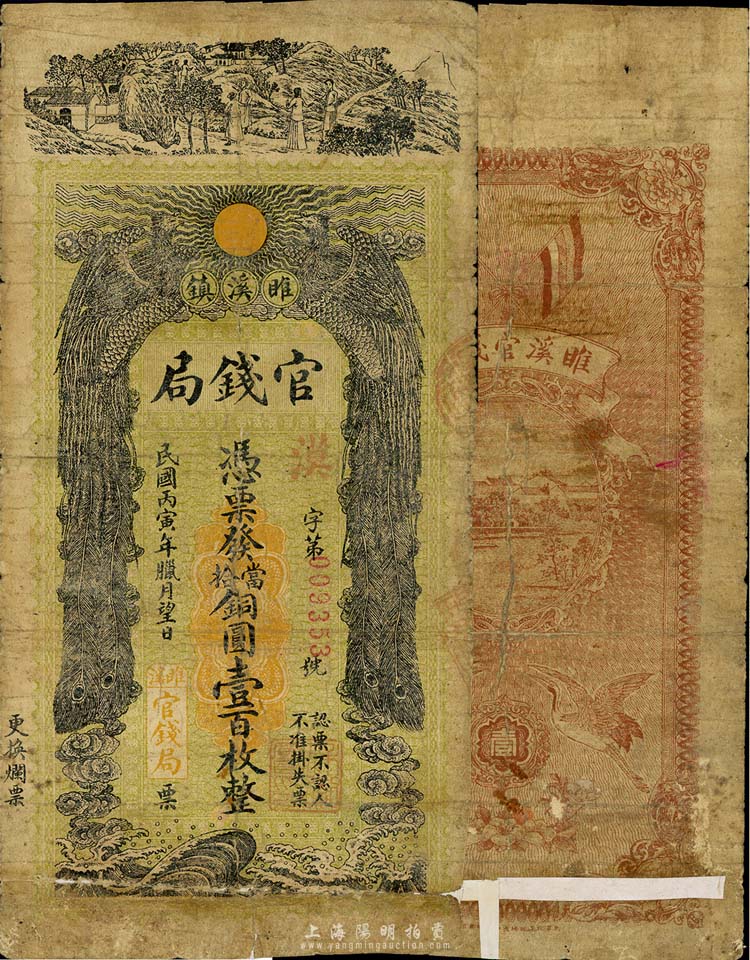 睢溪鎮
官錢局
漢
字第009353號
憑票發當拾銅圓壹百枚整
民國丙寅年臘月望日
官錢局
票
認票不認人
不准掛失票
更換爛票
睢溪官錢
壹
上海陽明拍賣
www.yangmingauction.com